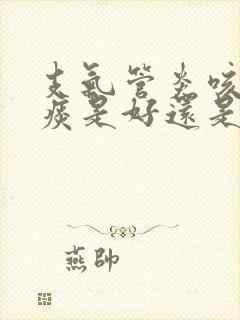 支氣管炎咳
痰是好還是
燕帥